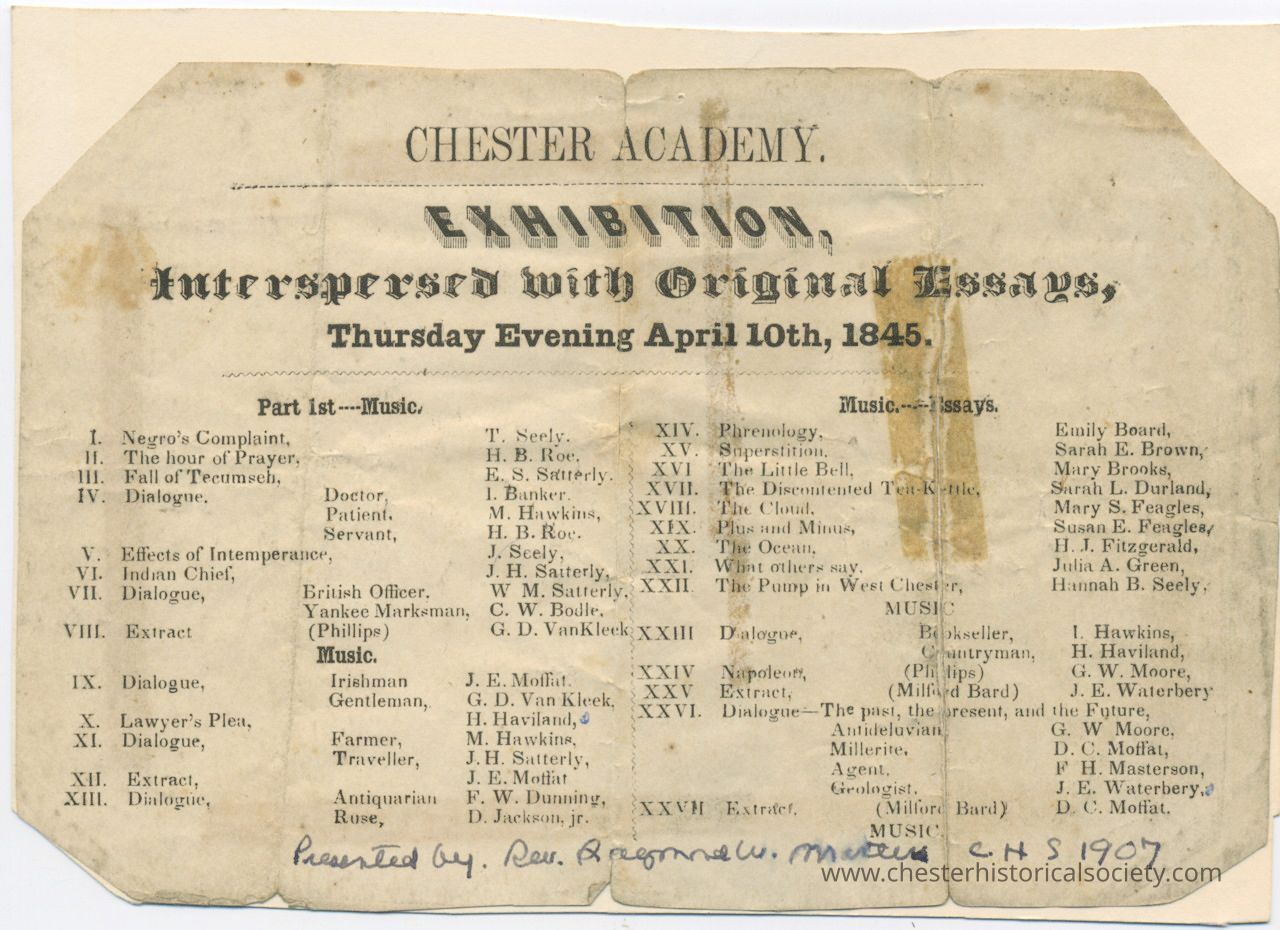 CHESTER ACADEMY.
EXHIBITION,
Interspersed with Original Essays,
Thursday Evening April 10th, 1845.
Part 1st----Music.
I. Negro's Complaint, T. Seely.
II. The hour of Prayer, H. B. Roe,
III. Fall of Tecumseh, E. S. Satterly.
IV. Dialogue, Doctor, I. Banker.
Patient, M. Hawkins,
Servant, H. B. Roe.
V. Effects of Intemperance, J. Seely,
VI. Indian Chief, J. H. Satterly,
VII. Dialogue, British Officer, W M. Satterly,
Yankee Marksman, C. W. Bodle,
VIII. Extract (Phillips) G. D. VanKleek
Music.
IX. Dialogue, Irishman J. E. Moffat.
Gentleman, G. D. Van Kleek,
X. Lawyer's Plea, H. Haviland,
XI. Dialogue, Farmer, M. Hawkins,
Traveller, J. H. Satterly,
XII. Extract, J. E. Moffat
XIII. Dialogue, Antiquarian F. W. Dunning,
Rose, D. Jackson, jr.
Music.---Essays.
XIV. Phrenology, Emily Board,
XV. Superstition, Sarah E. Brown,
XVI The Little Bell, Mary Brooks,
XVII. The Discontented Tea-Kettle, Sarah L. Durland,
XVIII. The Cloud, Mary S. Feagles,
XIX. Plus and Minus, Susan E. Feagles,
XX. The Ocean, H. J. Fitzgerald,
XXI. What others say, Julia A. Green,
XXII. The Pump in West Chester, Hannah B. Seely,
MUSIC
XXIII Dialogue, Bookseller, I. Hawkins,
Countryman, H. Haviland,
XXIV Napoleon, (Phillips) G. W. Moore,
XXV Extract, (Milford Bard) J. E. Waterbery
XXVI. Dialogue—The past, the present, and the Future,
Antideluvian G. W Moore,
Millerite, D. C. Moffat,
Agent, F H. Masterson,
Geologist, J. E. Waterbery,
XXVII Extract, (Milford Bard) D. C. Moffat.
MUSIC.
Presented by. Rev. W. C H S 1907
www.chesterhistoricalsociety.com